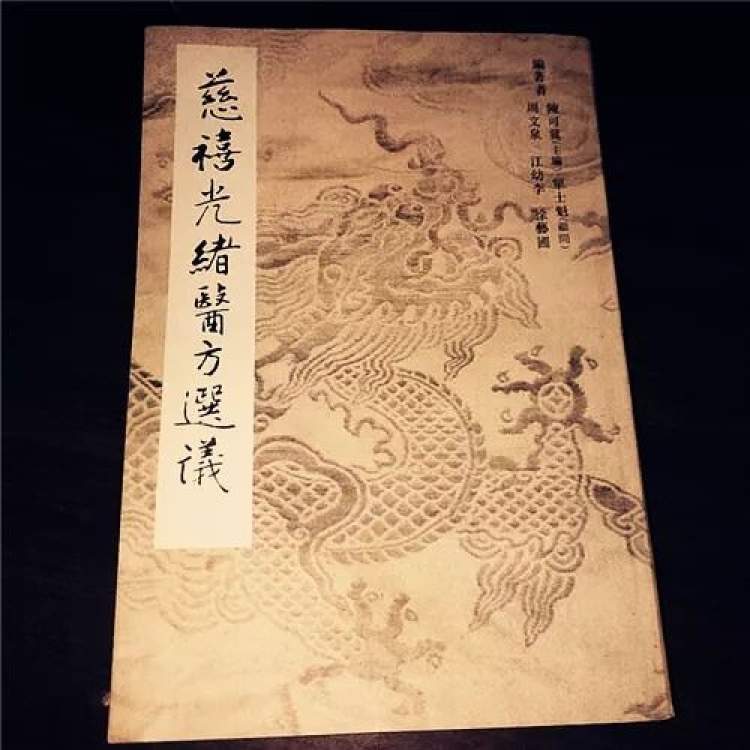 慈禧光緒醫方選議
編著者 陳可冀(主編) 單士魁(顧問)
周文泉 江幼李 徐藝圃